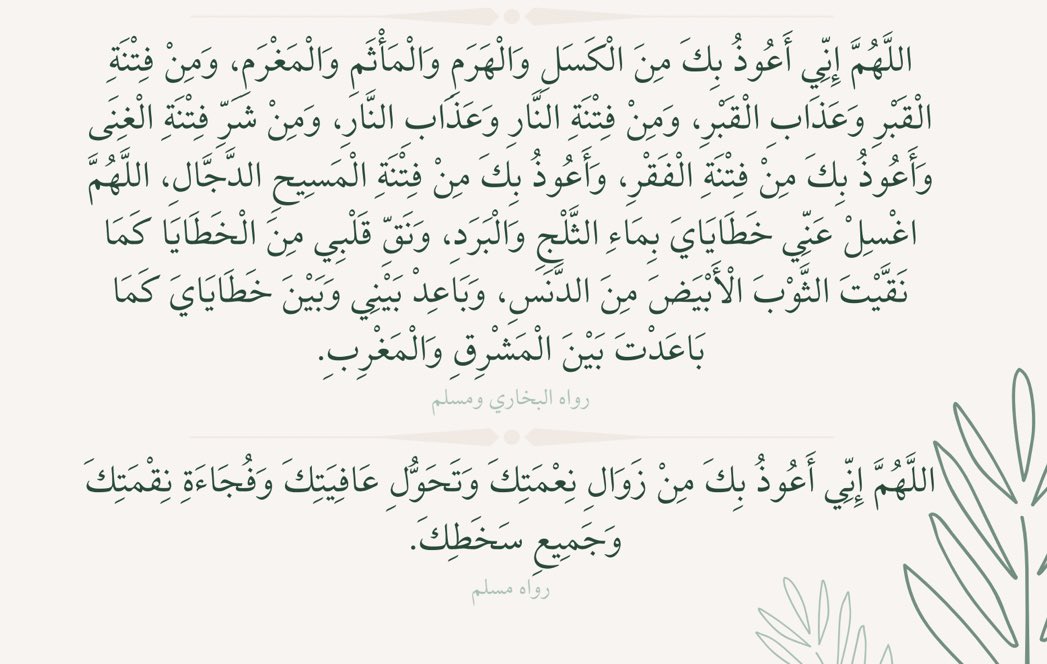 اللَّهُمَّ إِنِّي أَعُوذُ بِكَ مِنَ الْكَسَلِ وَالْهَرَمِ وَالْمَأْثَمِ وَالْمَغْرَمِ، وَمِنْ فِتْنَةِ
الْقَبْرِ وَعَذَابِ الْقَبْرِ، وَمِنْ فِتْنَةِ النَّارِ وَعَذَابِ النَّارِ، وَمِنْ شَرِّ فِتْنَةِ الْغِنَى
وَأَعُوذُ بِكَ مِنْ فِتْنَةِ الْفَقْرِ، وَأَعُوذُ بِكَ مِنْ فِتْنَةِ الْمَسِيحِ الدَّجَّالِ، اللَّهُمَّ
اغْسِلْ عَنِّي خَطَايَايَ بِمَاءِ الثَّلْجِ وَالْبَرَدِ، وَنَقِّ قَلْبِي مِنَ الْخَطَايَا كَمَا
نَقَّيْتَ الثَّوْبَ الْأَبْيَضَ مِنَ الدَّنَسِ، وَبَاعِدْ بَيْنِي وَبَيْنَ خَطَايَايَ كَمَا
بَاعَدْتَ بَيْنَ الْمَشْرِقِ وَالْمَغْرِبِ.
رواه البخاري ومسلم
اللَّهُمَّ إِنِّي أَعُوذُ بِكَ مِنْ زَوَالِ نِعْمَتِكَ وَتَحَوُّلِ عَافِيَتِكَ وَفُجَاءَةِ نِقْمَتِكَ
وَجَمِيعِ سَخَطِكَ.
رواه مسلم